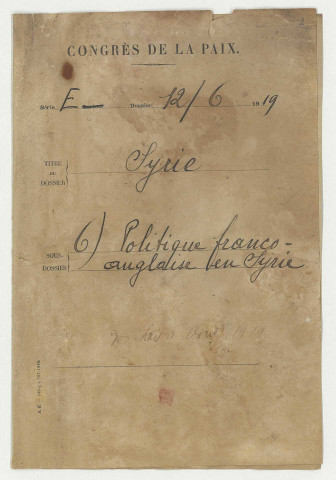 CONGRÈS DE LA PAIX.
Série, E Dossier, 12/6 1919
TITRE
DU
DOSSIER
Syrie
SOUS-
DOSSIER
6) Politique franco-
anglaise en Syrie